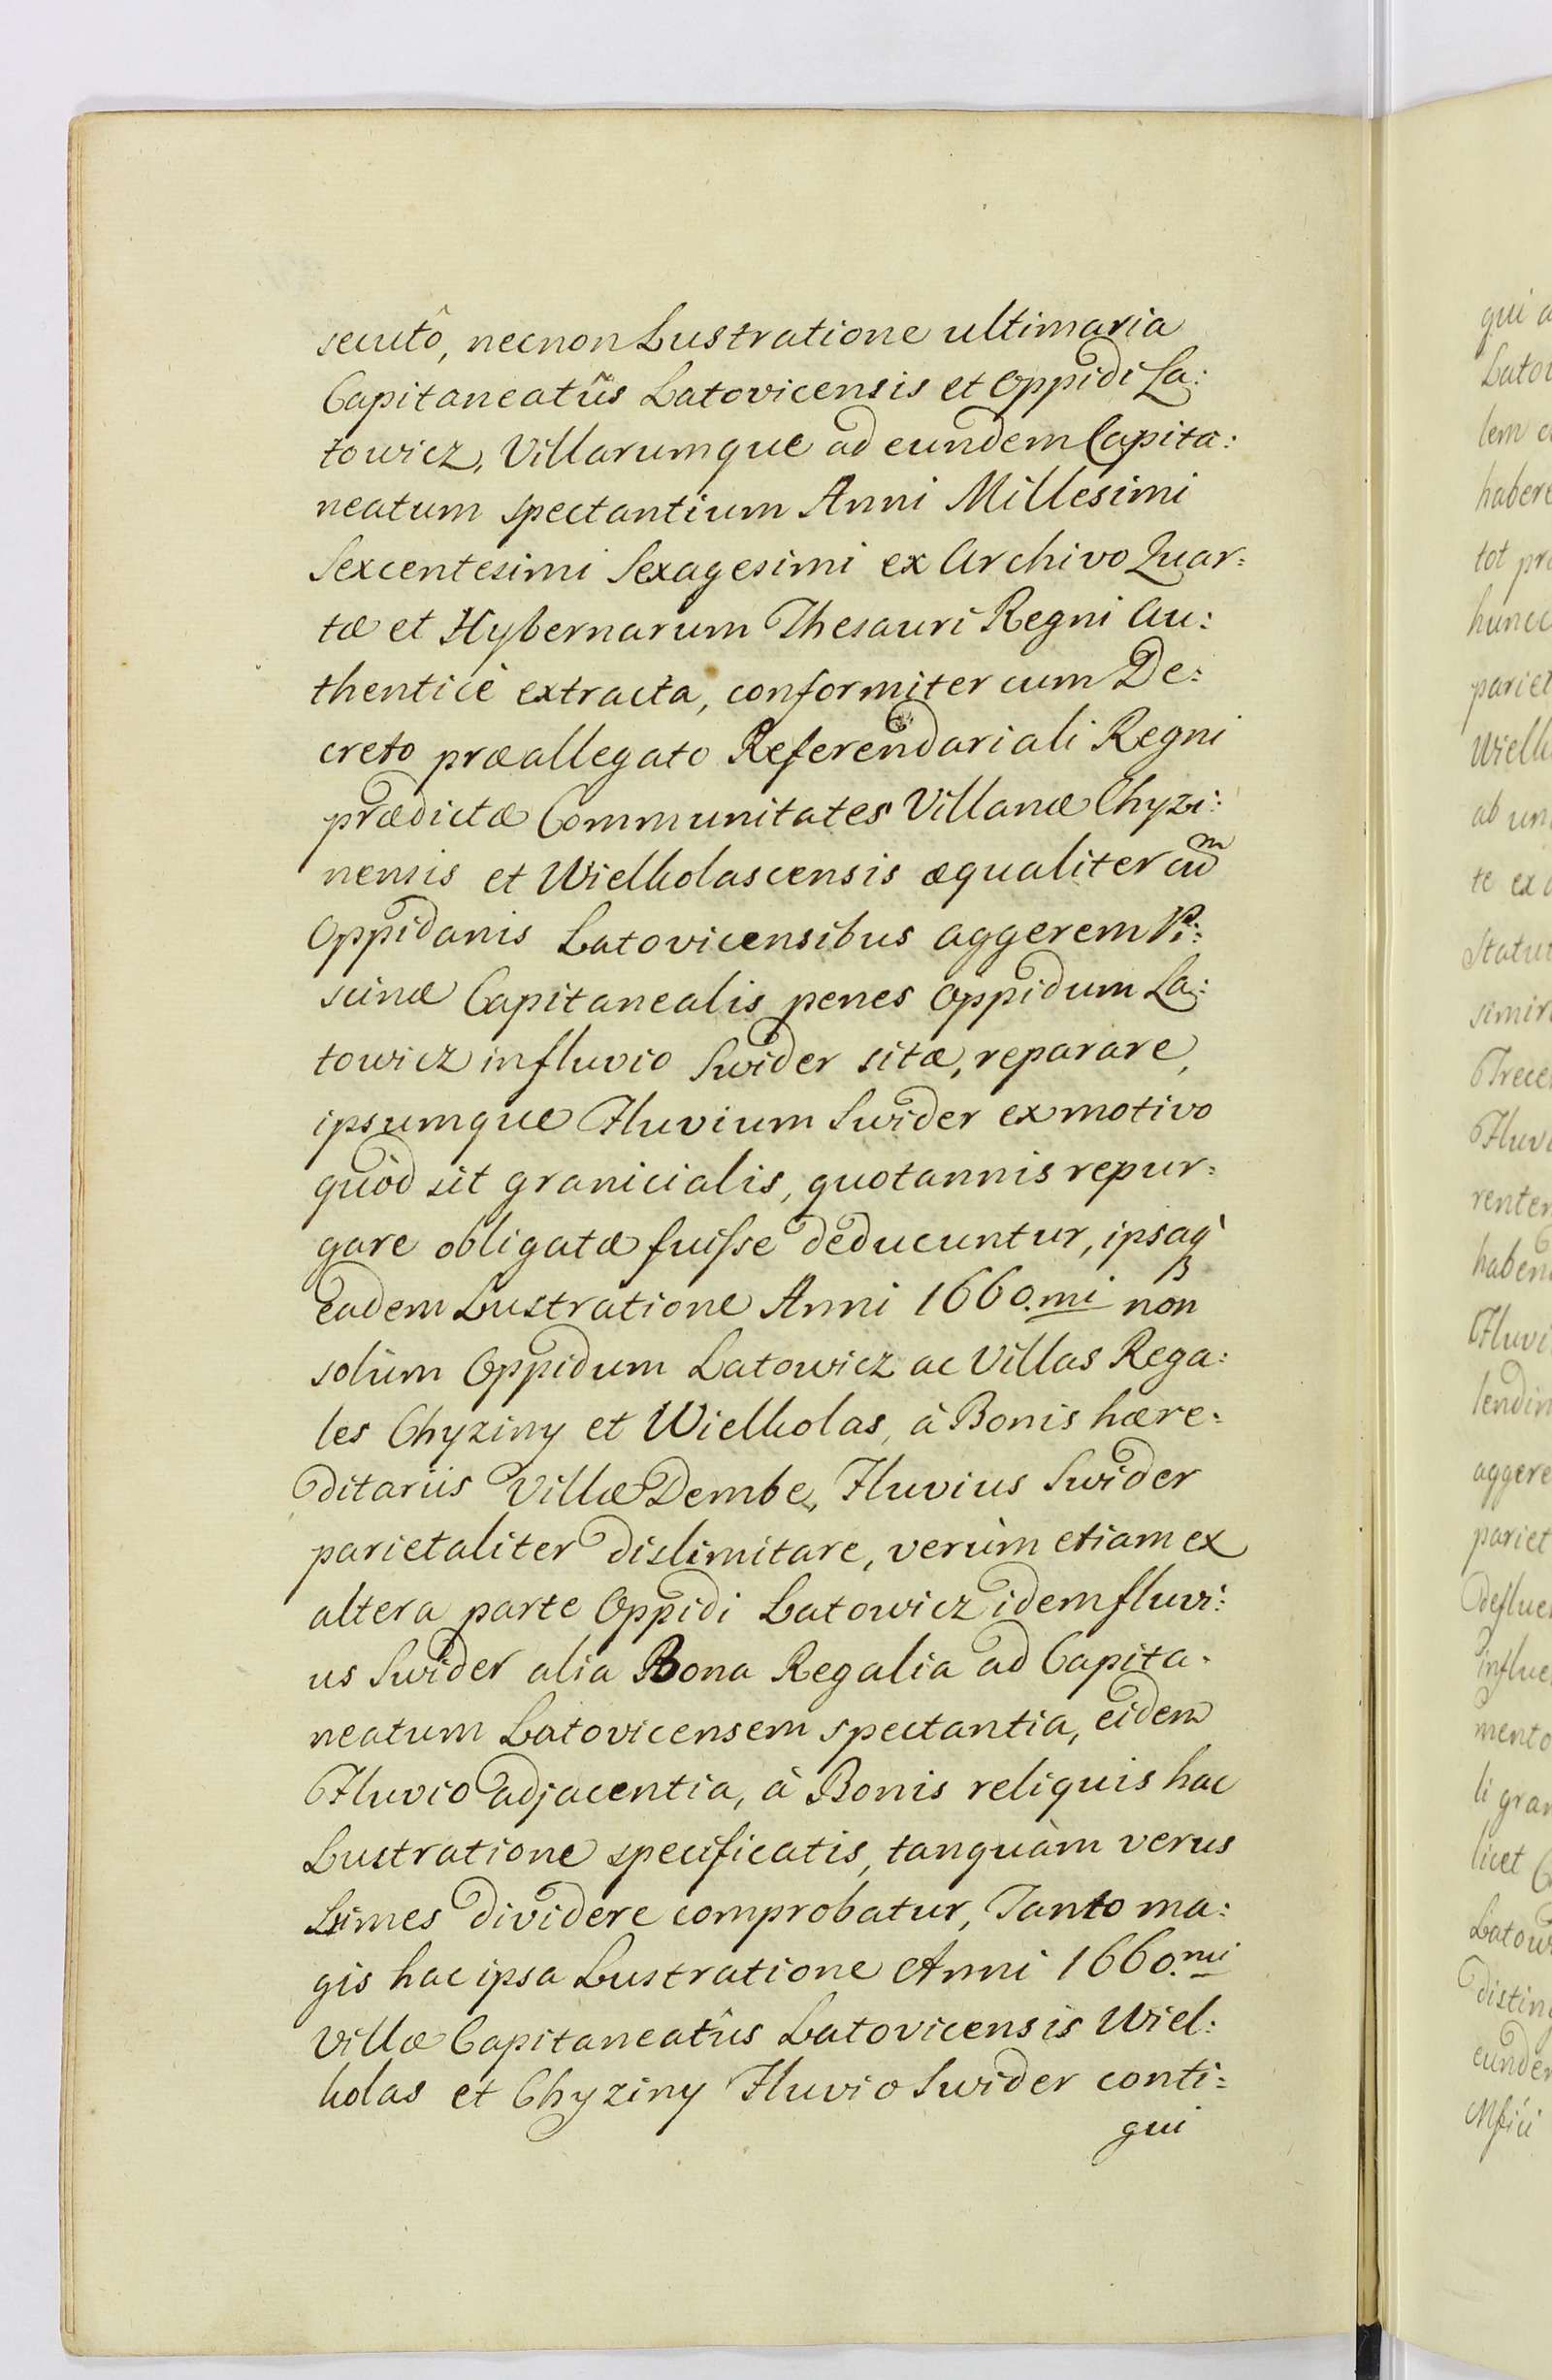 secutô, necnon Lustratione ultimaria
Capitaneatûs Latovicensis et Oppidi La:
towicz, Villarumque ad eundem Capita:
neatum spectantium Anni Millesimi
Sexcentesimi Sexagesimi ex Archivo Quar:
tæ et Hybernarum Thesauri Regni Au:
thenticè extracta, conformiter cum De:
creto præallegato Referendariali Regni
prædictæ Communitates Villanæ Chyzi:
nensis et Wielkolascensis æqualiter cum
Oppidanis Latovicensibus aggerem Pi:
scinæ Capitanealis penes Oppidum La:
towicz in fluvio Swider sitæ, reparare,
ipsumque Fluvium Swider ex motivo
quòd sit granicialis, quotannis repur:
gare obligatæ fuisse deducuntur, ipsaq
Eadem Lustratione Anni 1660.mi non
solùm Oppidum Latowicz ac Villas Rega:
les Chyziny et Wielkolas, à Bonis hære:
ditariis Villæ Dembe, Fluvius Swider
parietaliter dislimitare, verùm etiam ex
altera parte Oppidi Latowicz idem fluvi:
us Swider alia Bona Regalia ad Capita:
neatum Latovicensem spectantia, eidem
Fluvio adjacentia, à Bonis reliquis hac
Lustratione specificatis, tanquàm verus
Limes dividere comprobatur, Tanto ma:
gis hac ipsa Lustratione Anni 1660.mi
Villæ Capitaneatûs Latovicensis Wiel:
kolas et Chyziny Fluvio Swider conti:
gui